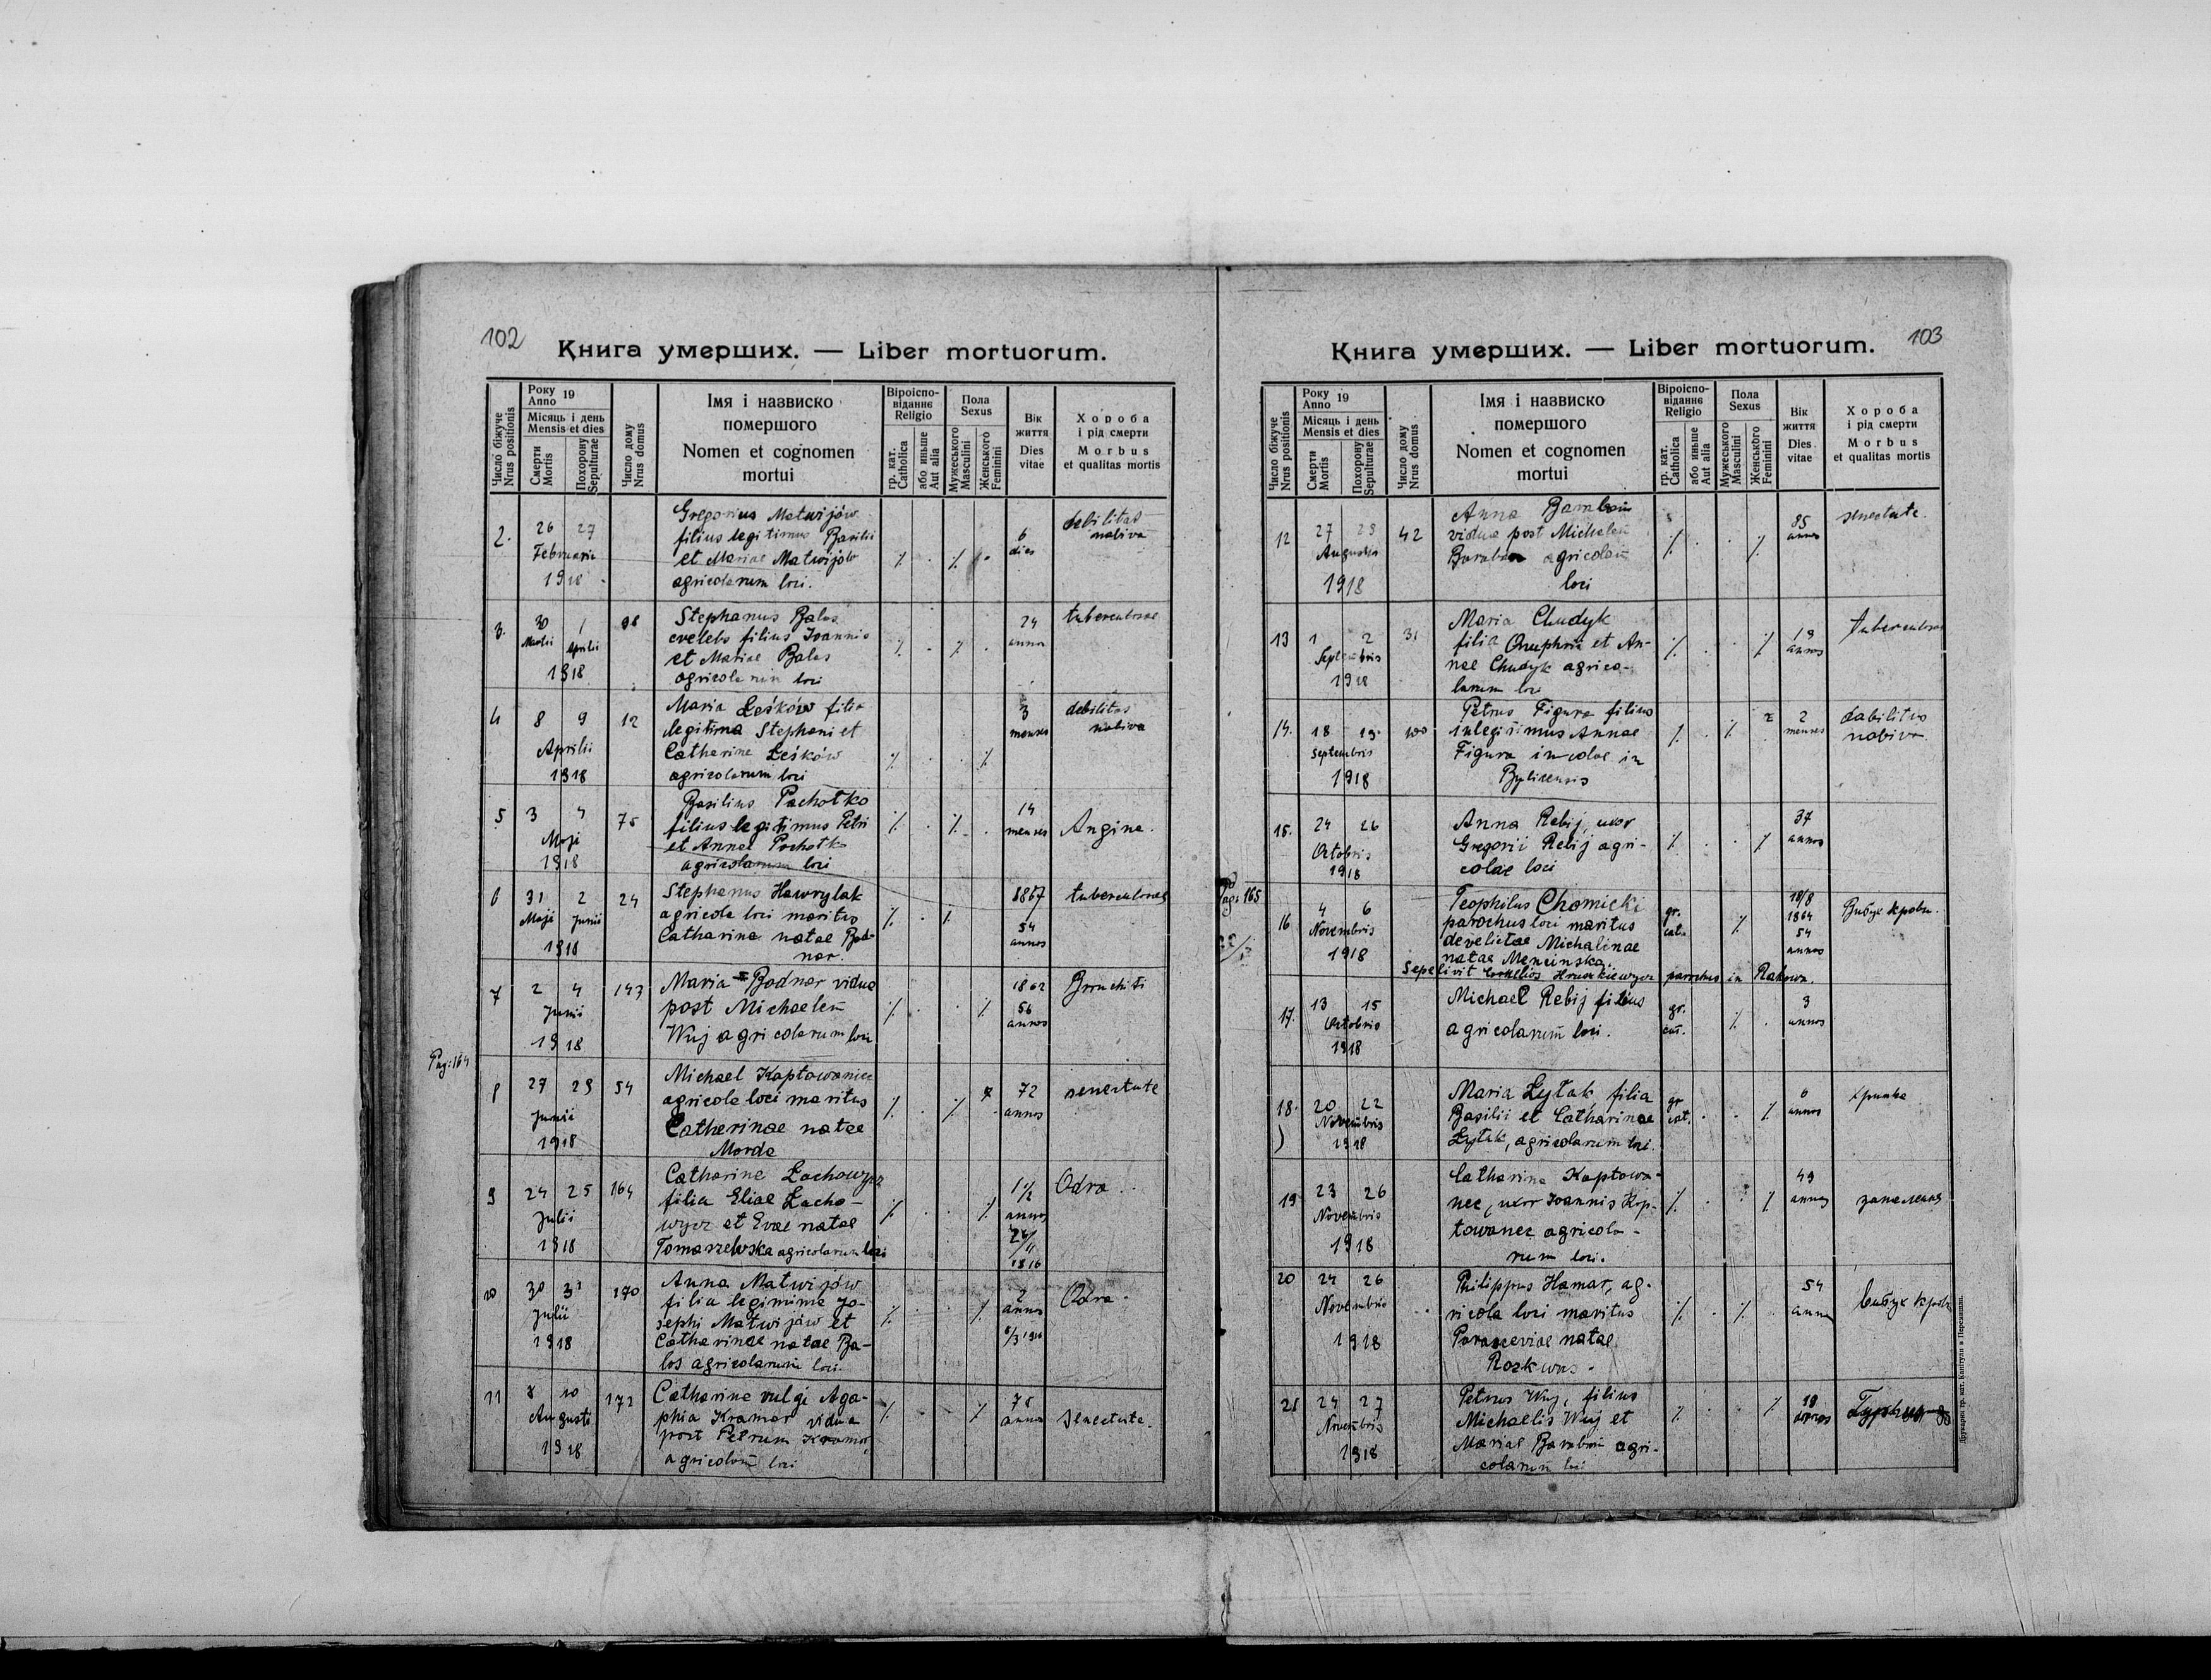 102
Книга умерших. — Liber mortuorum.
Число біжуче Nrus positionis
Року Anno 19
Місяць і день Mensis et dies
Смерти Mortis
Похорону Sepulturae
Число дому Nrus domus
Імя і назвиско помершого
Nomen et cognomen mortui
Віроіспо-віданнє Religio
гр. кат. Catholica
або иньше Aut alia
Пола Sexus
Мужеського Masculini
Женського Feminini
Вік життя Dies vitae
Хороба і рід смерти
Morbus et qualitas mortis
2. 26 27
Februarii
1918
Gregorius Matwijów
filius legitimus Basilii
et Mariae Matwijów
agricolarum loci.
6 dies
debilitas nativa
3. 30 1 98
Martii Aprilii
1918
Stephanus Balas
filius Joannis
et Mariae Balas
agricolarum loci
24
tuberculosae
4 8 9 12
Aprilii
1918
Maria Łeśków filia
legitima Stephani et
Catharine Łeśków
agricolarum loci
3 menses
debilitas nativa
5 3 4 75
Maji
1918
Basilius Pachołko
filius legitimus Petri
et Annae Pachołko
agricolarum loci
14 menses
Angina.
6 31 2 24
Maji Junii
1918
Stephanus Hawrylak
agricola loci maritus
Catharina natae Bod-
nar.
1867
54 annos
tuberculosae
7 2 4 143
Junii
1918
Maria Bodnar vidua
post Michaelem
Wuj agricolarum loci
1862
56 annos
Bronchiti
Pag: 164
8 27 29 54
Junii
1918
Michael Kaptowaniec
agricola loci maritus
Catherinae natae
Morda
72 annos
senectute
9 24 25 164
Julii
1918
Catharine Łachowycz
filia Eliae Łacho-
wycz et Evae natae
Tomaszewska agricolarum loci
1 1/2 annos
Odra.
10 30 31 170
Julii
1918
Anna Matwijów
filia legimima Jo-
sephi Matwijów et
Catharinae natae Ba-
los agricolarum loci.
2 annos
Odra.
11 8 10 172
Augusti
1918
Catharine vulgi Aga-
phia Kramar vidua
post Petrum Kramar,
agricolam loci
75
Senectute.
103
Книга умерших. — Liber mortuorum.
Число біжуче Nrus positionis
Року Anno 19
Місяць і день Mensis et dies
Смерти Mortis
Похорону Sepulturae
Число дому Nrus domus
Імя і назвиско помершого
Nomen et cognomen mortui
Віроіспо-віданнє Religio
гр. кат. Catholica
або иньше Aut alia
Пола Sexus
Мужеського Masculini
Женського Feminini
Вік життя Dies vitae
Хороба і рід смерти
Morbus et qualitas mortis
12 27 28 42
Augusti
1918
Anna
vidua post Michalem
agricolam
loci
85 annos
senectute.
13 1 2 31
Septembris
1918
Maria Chudyk
filia Onuphrii et An-
nae Chudyk agrico-
larum loci
19 annos
14. 18 19 100
Septembris
1918
Petrus Figura filius
inlegitimus Annae
Figura incolae in
2 menses
nativa
15. 24 26
Octobris
1918
Anna Rebij, uxor
Gregorii Rebij agri-
colae loci
37 annos
Pag: 165
16 4 6
Novembris
1918
Teophilus Chomicki
parochus loci maritus
Michalinae
natae Mencinska.
Sepelivit parochus in Rakowa.
gr. cat.
18/8
1864
54 annos
Вибух крови.
17. 13 15
Octobris
1918
Michael Rebij filius
agricolarum loci.
gr. cat.
3 annos
18. 20 22
Novembris
1918
Maria Łytak filia
Basilii et Catharinae
Łytak, agricolarum loci.
gr. cat.
6 annos
19 23 26
Novembris
1918
Catharina Kaptowa-
nec, uxor Joannis Kap-
towanec agricola-
rum loci.
49
запалення
20 24 26
Novembris
1918
Philippus Hamar, ag-
ricola loci maritus
Parasceviae natae
54
Вибух крови
21 24 27
Novembris
1918
Petrus Wuj, filius
Michaelis Wuj et
Mariae agri-
colarum loci
18
Друкарня гр. кат. Капітули в Перемишлі.